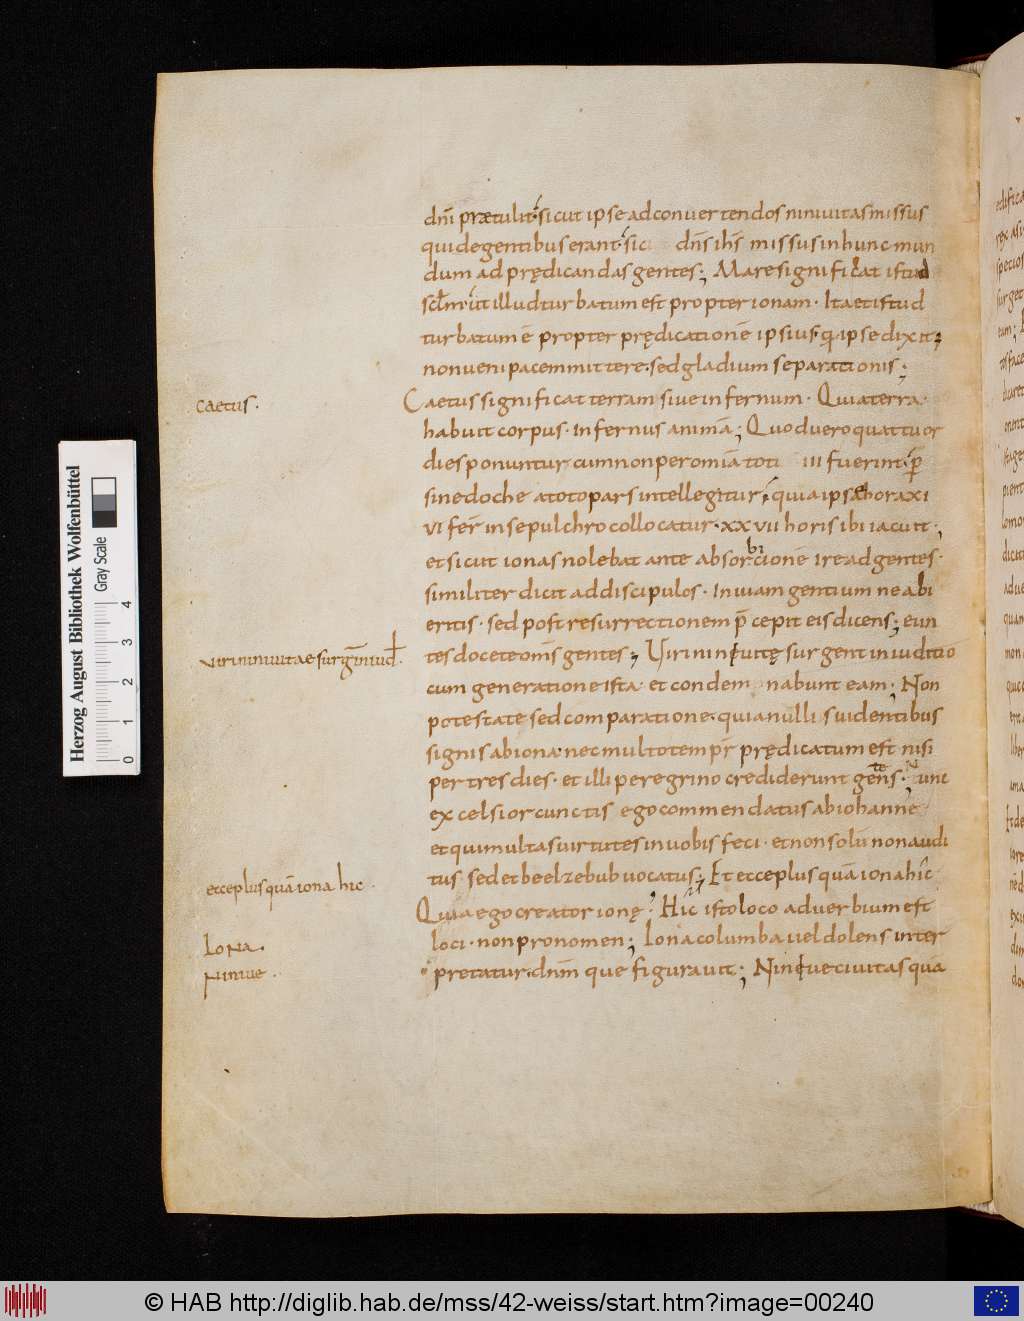 dn̄i prætulit· sicut ipse ad convertendos ninivitas missus
qui de gentibus erant· sic dn̄s ih̄s missus in hunc mun
dum ad prędicandas gentes; Mare significat istud
sc̄lm· ut illud turbatum est propter ionam· Ita et istud
turbatum ē propter prędicationē ipsius· q̄ ipse dixit;
non veni pacem mittere· sed gladium separationis;
caetus·
Caetus significat terram sive infernum· Quia terra
habuit corpus· infernus animā; Quod vero quattuor
dies ponuntur cum non per omia toti III fuerint· p̄
sinedoche a toto pars intellegitur· quia ipsa hora XI
VI fer̄ in sepulchro collocatur· XXVII horis ibi iacuit;
et sicut ionas nolebat ante absorbicionē ire ad gentes·
similiter dicit ad discipulos· In viam gentium ne abi
eritis· sed post resurrectionem p̄cepit eis dicens; eun
viri ninivitae surḡ in iud·
tes docete om̄s gentes; Viri ninivitę surgent in iuditio
cum generatione ista et condemnabunt eam; Non
potestate sed comparatione· quia nulli s videntibus
signis ab iona· nec multo temp̄r prędicatum est nisi
per tres dies· et illi peregrino crediderunt gen̄s te· Nunc
excelsior cunctis ego commendatus ab iohanne
et qui multas virtutes in vobis feci· et non solū non audi
et ecce plus quā iona hic·
tus sed et beelzebub vocatus; Et ecce plus quā iona hic
Quia ego creator ionę· Hic isto loco adverbium est
Iona·
loci· non pronomen; Iona columba vel dolens inter
Ninive·
pretatur· dn̄m que figuravit; Ninive civitas quā
Herzog August Bibliothek Wolfenbüttel
Gray Scale
0 1 2 3 4
© HAB http://diglib.hab.de/mss/42-weiss/start.htm?image=00240